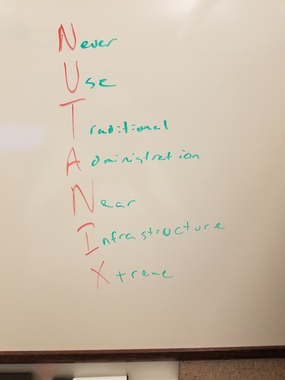 Never
Use
Traditional
Administration
Near
Infrastructure
Xtreme